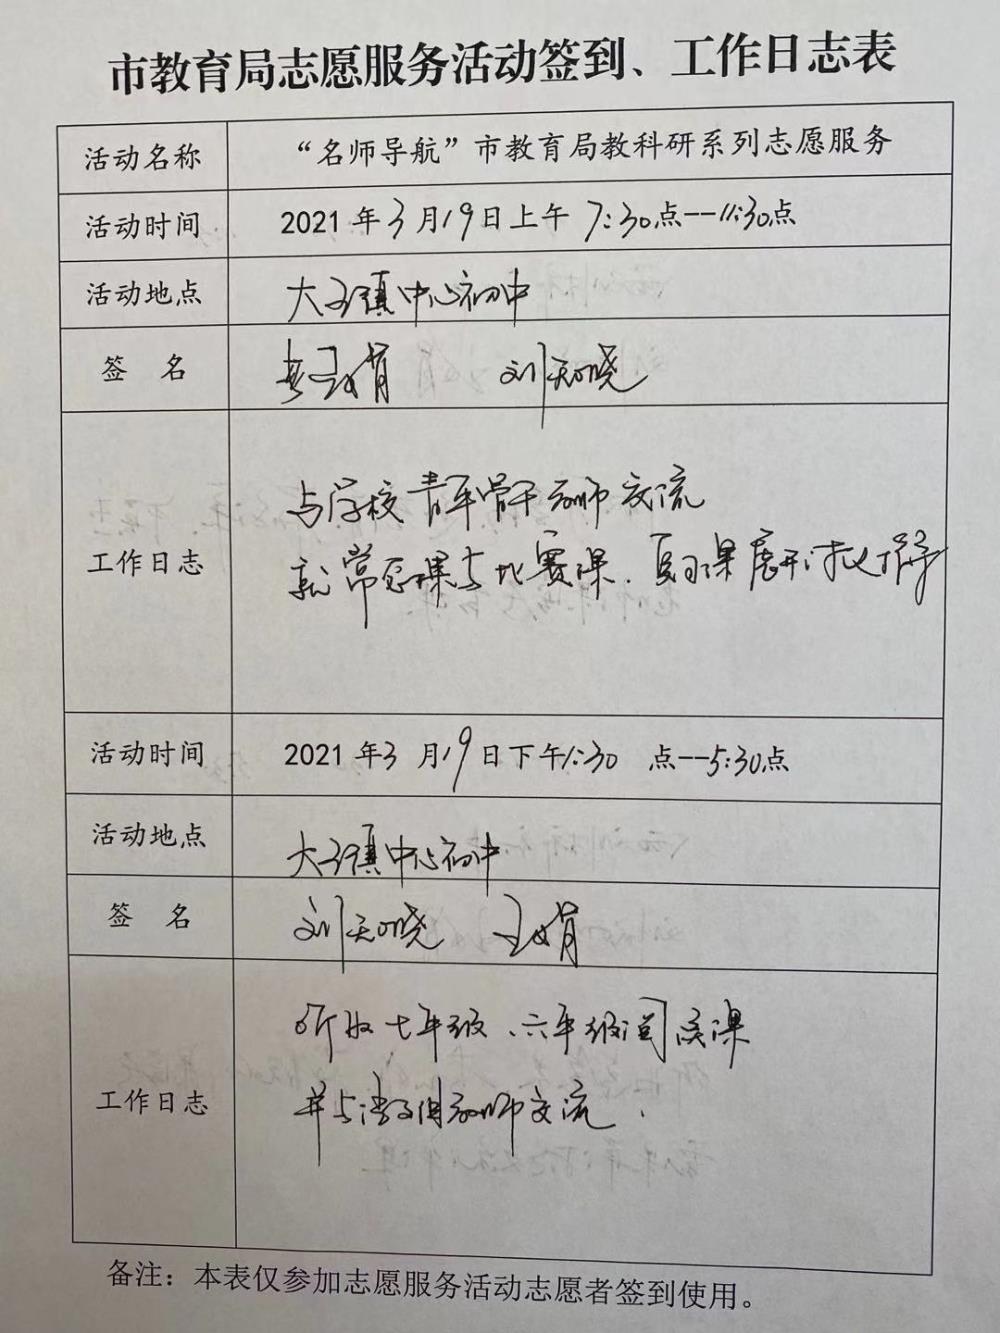 市教育局志愿服务活动签到、工作日志表
活动名称 “名师导航”市教育局教科研系列志愿服务
活动时间 2021年3月19日上午7:30点--11:30点
活动地点 大孟镇中心初中
签 名 刘天晓
工作日志 与学校青年骨干教师交流
就常态课与比赛课、复习课展开讨论指导
活动时间 2021年3月19日下午1:30点--5:30点
活动地点 大孟镇中心初中
签 名 刘天晓
工作日志 听取七年级、六年级 课
并与 教师交流.
备注：本表仅参加志愿服务活动志愿者签到使用。